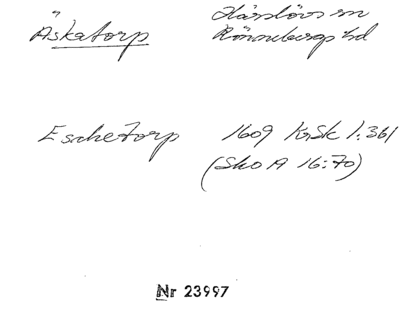 Äskatorp Härslövs sn
Rönnebergs hd
Eschetorp 1609 KrSk 1:361
(SkoA 16:70)
Nr 23997